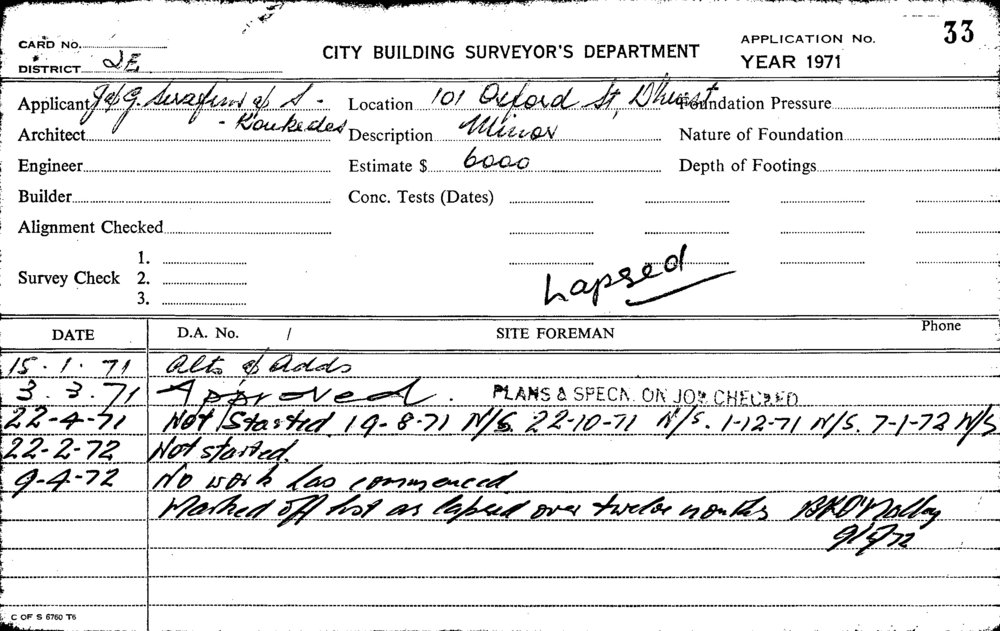 CARD No.
DISTRICT 2E
CITY BUILDING SURVEYOR'S DEPARTMENT
APPLICATION No. 33
YEAR 1971
Applicant J & G. Serafim & S -
- Koukedes
Location 101 Oxford St, D'hurst
Foundation Pressure
Architect
Description Minor
Nature of Foundation
Engineer
Estimate $ 6000
Depth of Footings
Builder
Conc. Tests (Dates)
Alignment Checked
Survey Check 1.
2.
3.
Lapsed
DATE D.A. No. / SITE FOREMAN Phone
15.1.71 Alts & Adds
3.3.71 Approved. PLANS & SPECN. ON JOB CHECKED
22-4-71 Not Started. 19-8-71 N/S. 22-10-71 N/S. 1-12-71 N/S. 7-1-72 N/S.
22-2-72 Not started.
9-4-72 No work has commenced
Marked off list as lapsed over twelve months
C OF S 6760 T6